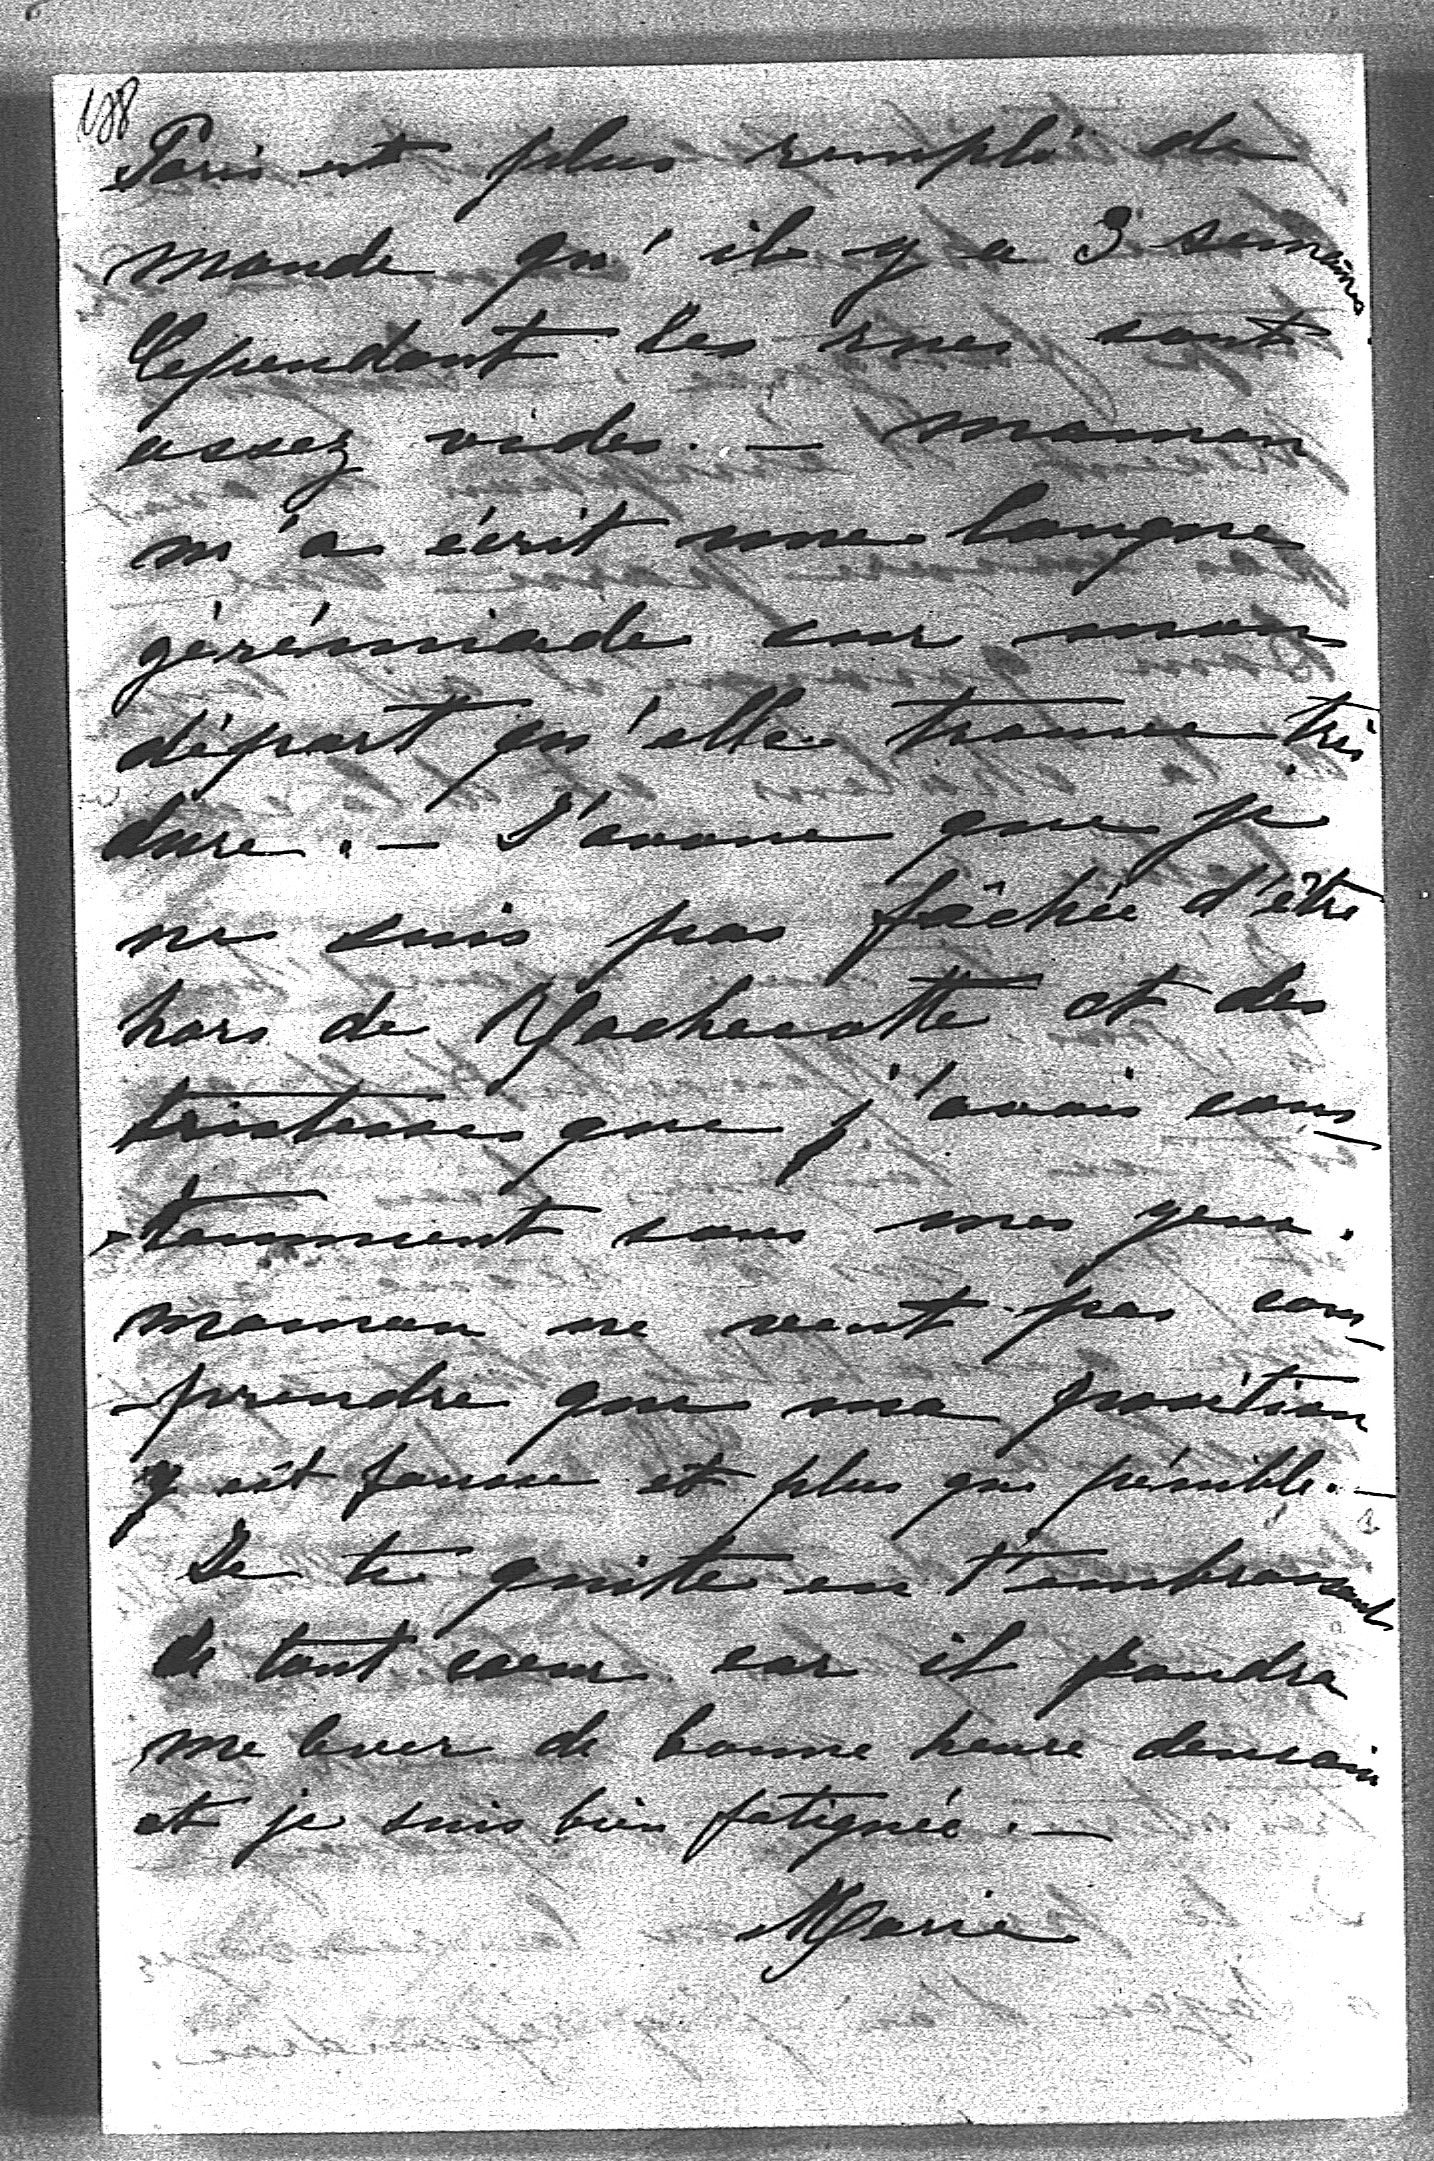 188
Paris est plus rempli de
monde qu'il y a 3 semaines
Cependant les rues sont
assez vides. — maman
m'a écrit une longue
jérémiade sur mon
départ qu'elle trouve très
dure. — J'avoue que je
ne suis pas fâchée d'être
hors de Rochecotte et des
tristesses que j'avais cons-
-tamment sous mes yeux.
maman ne veut pas com-
-prendre que ma position
y est fausse et plus que pénible. —
Je te quitte en t'embrassant
de tout coeur car il faudra
me lever de bonne heure demain
et je suis bien fatiguée. —
Marie